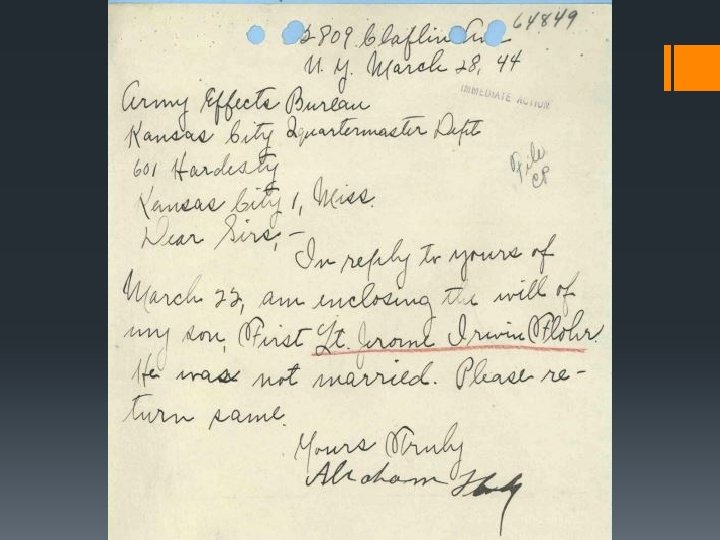 64849
2809 Claflin Ave
N.Y. March 28, 44
IMMEDIATE ACTION
Army Effects Bureau
Kansas City Quartermaster Dept
601 Hardesty
File
CP
Kansas City 1, Miss.
Dear Sirs; -
In reply to yours of
March 22, am enclosing the will of
my son, First Lt. Jerome Irwin Flohr.
He was not married. Please re-
turn same.
Yours Truly
Abraham